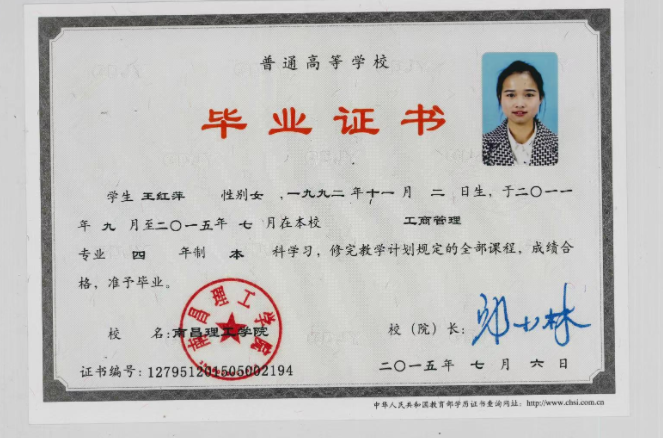 普通高等学校
毕业证书
学生 王红萍 性别女，一九九二年十一月二日生，于二〇一一
年九月至二〇一五年七月在本校 工商管理
专业 四 年制 本 科学习，修完教学计划规定的全部课程，成绩合
格，准予毕业。
校 名:南昌理工学院
校（院）长：
南昌理工学院
证书编号：127951201505002194
二〇一五年 七 月 六 日
中华人民共和国教育部学历证书查询网址：http://www.chsi.com.cn